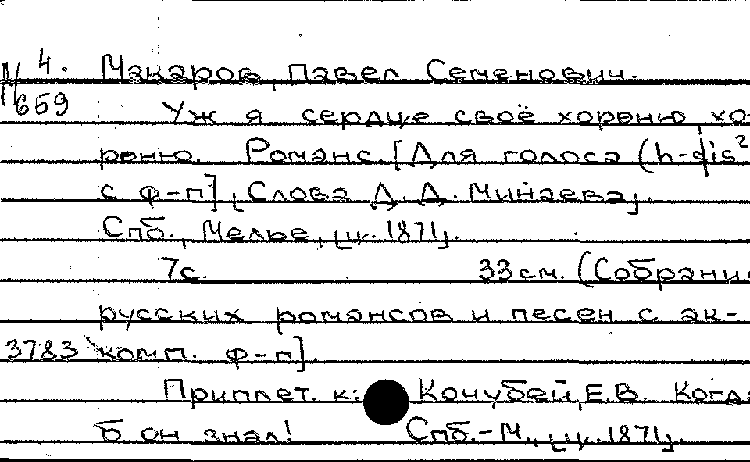 N 4. Макаров, Павел Семенович.
659 Уж я сердце своё хороню, хо-
роню. Романс. [Для голоса (h-dis²
с ф-п]. [Слова Д. Д. Минаева].
Спб., Мелье, [ц. 1871].
7с. 33 см. (Собрание
русских романсов и песен с ак-
3783 комп. ф-п]
Приплет. к: Кочубей, Е.В. Когда
б он знал! Спб.-М., [ц. 1871].